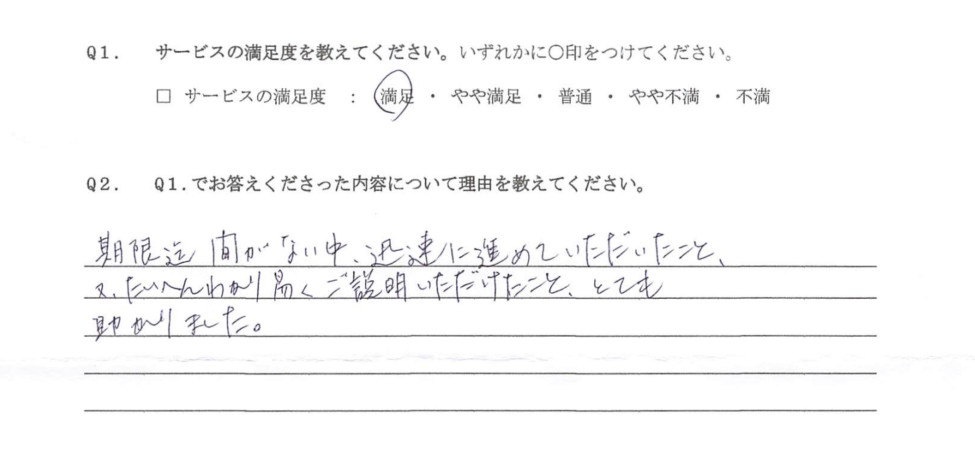 Q1. サービスの満足度を教えてください。いずれかに〇印をつけてください。
□ サービスの満足度 : 満足 ・ やや満足 ・ 普通 ・ やや不満 ・ 不満
Q2. Q1.でお答えくださった内容について理由を教えてください。
期限迄間がない中、迅速に進めていただいたこと、
又、たいへんわかり易くご説明いただけたこと、とても
助かりました。